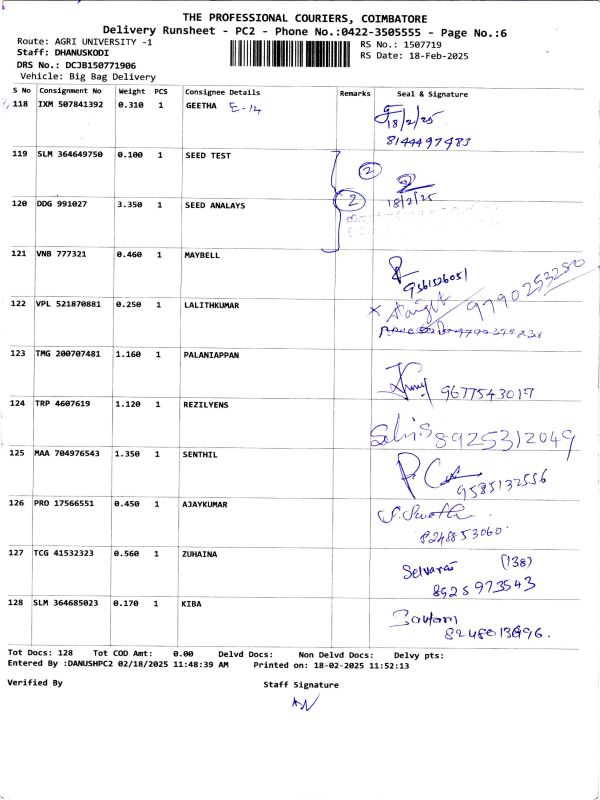 THE PROFESSIONAL COURIERS, COIMBATORE
Delivery Runsheet - PC2 - Phone No.:0422-3505555 - Page No.:6
Route: AGRI UNIVERSITY -1
Staff: DHANUSKODI
DRS No.: DCJB150771906
Vehicle: Big Bag Delivery
RS No.: 1507719
RS Date: 18-Feb-2025
S No Consignment No Weight PCS Consignee Details Remarks Seal & Signature
118 IXM 507841392 0.310 1 GEETHA E-14
18/2/25
8144497483
119 SLM 364649750 0.100 1 SEED TEST
2
18/2/25
120 DDG 991027 3.350 1 SEED ANALAYS 2
121 VNB 777321 0.460 1 MAYBELL
9361526051
122 VPL 521870881 0.250 1 LALITHKUMAR
9790253280
123 TMG 200707481 1.160 1 PALANIAPPAN
9677543017
124 TRP 4607619 1.120 1 REZILYENS
8925312049
125 MAA 704976543 1.350 1 SENTHIL
9585132556
126 PRO 17566551 0.450 1 AJAYKUMAR
8248853060
127 TCG 41532323 0.560 1 ZUHAINA
Selvaraj (138)
8925973543
128 SLM 364685023 0.170 1 KIBA
Tot Docs: 128 Tot COD Amt: 0.00 Delvd Docs: Non Delvd Docs: Delvy pts:
Entered By :DANUSHPC2 02/18/2025 11:48:39 AM Printed on: 18-02-2025 11:52:13
Verified By Staff Signature